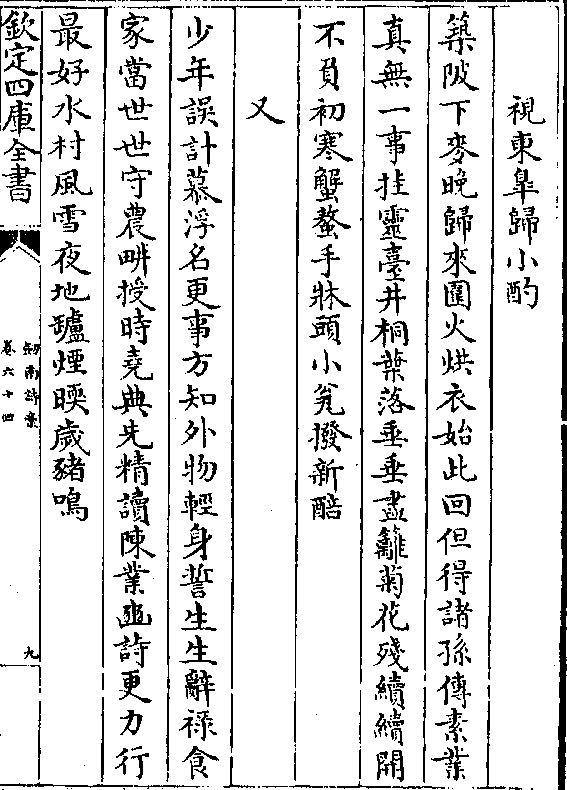 視東臯歸小酌
築陂下麥晚歸來圍火烘衣始此回但得諸孫傳素業
真無一事挂靈臺井桐葉落垂垂盡籬菊花殘續續開
不負初寒蟹螯手牀頭小瓮撥新醅
又
少年誤計慕浮名更事方知外物輕身誓生生辭祿食
家當世世守農畊授時堯典先精讀陳業豳詩更力行
最好水村風雪夜地罏煙暖歲豬鳴
欽定四庫全書
劒南詩稾
卷六十四
九